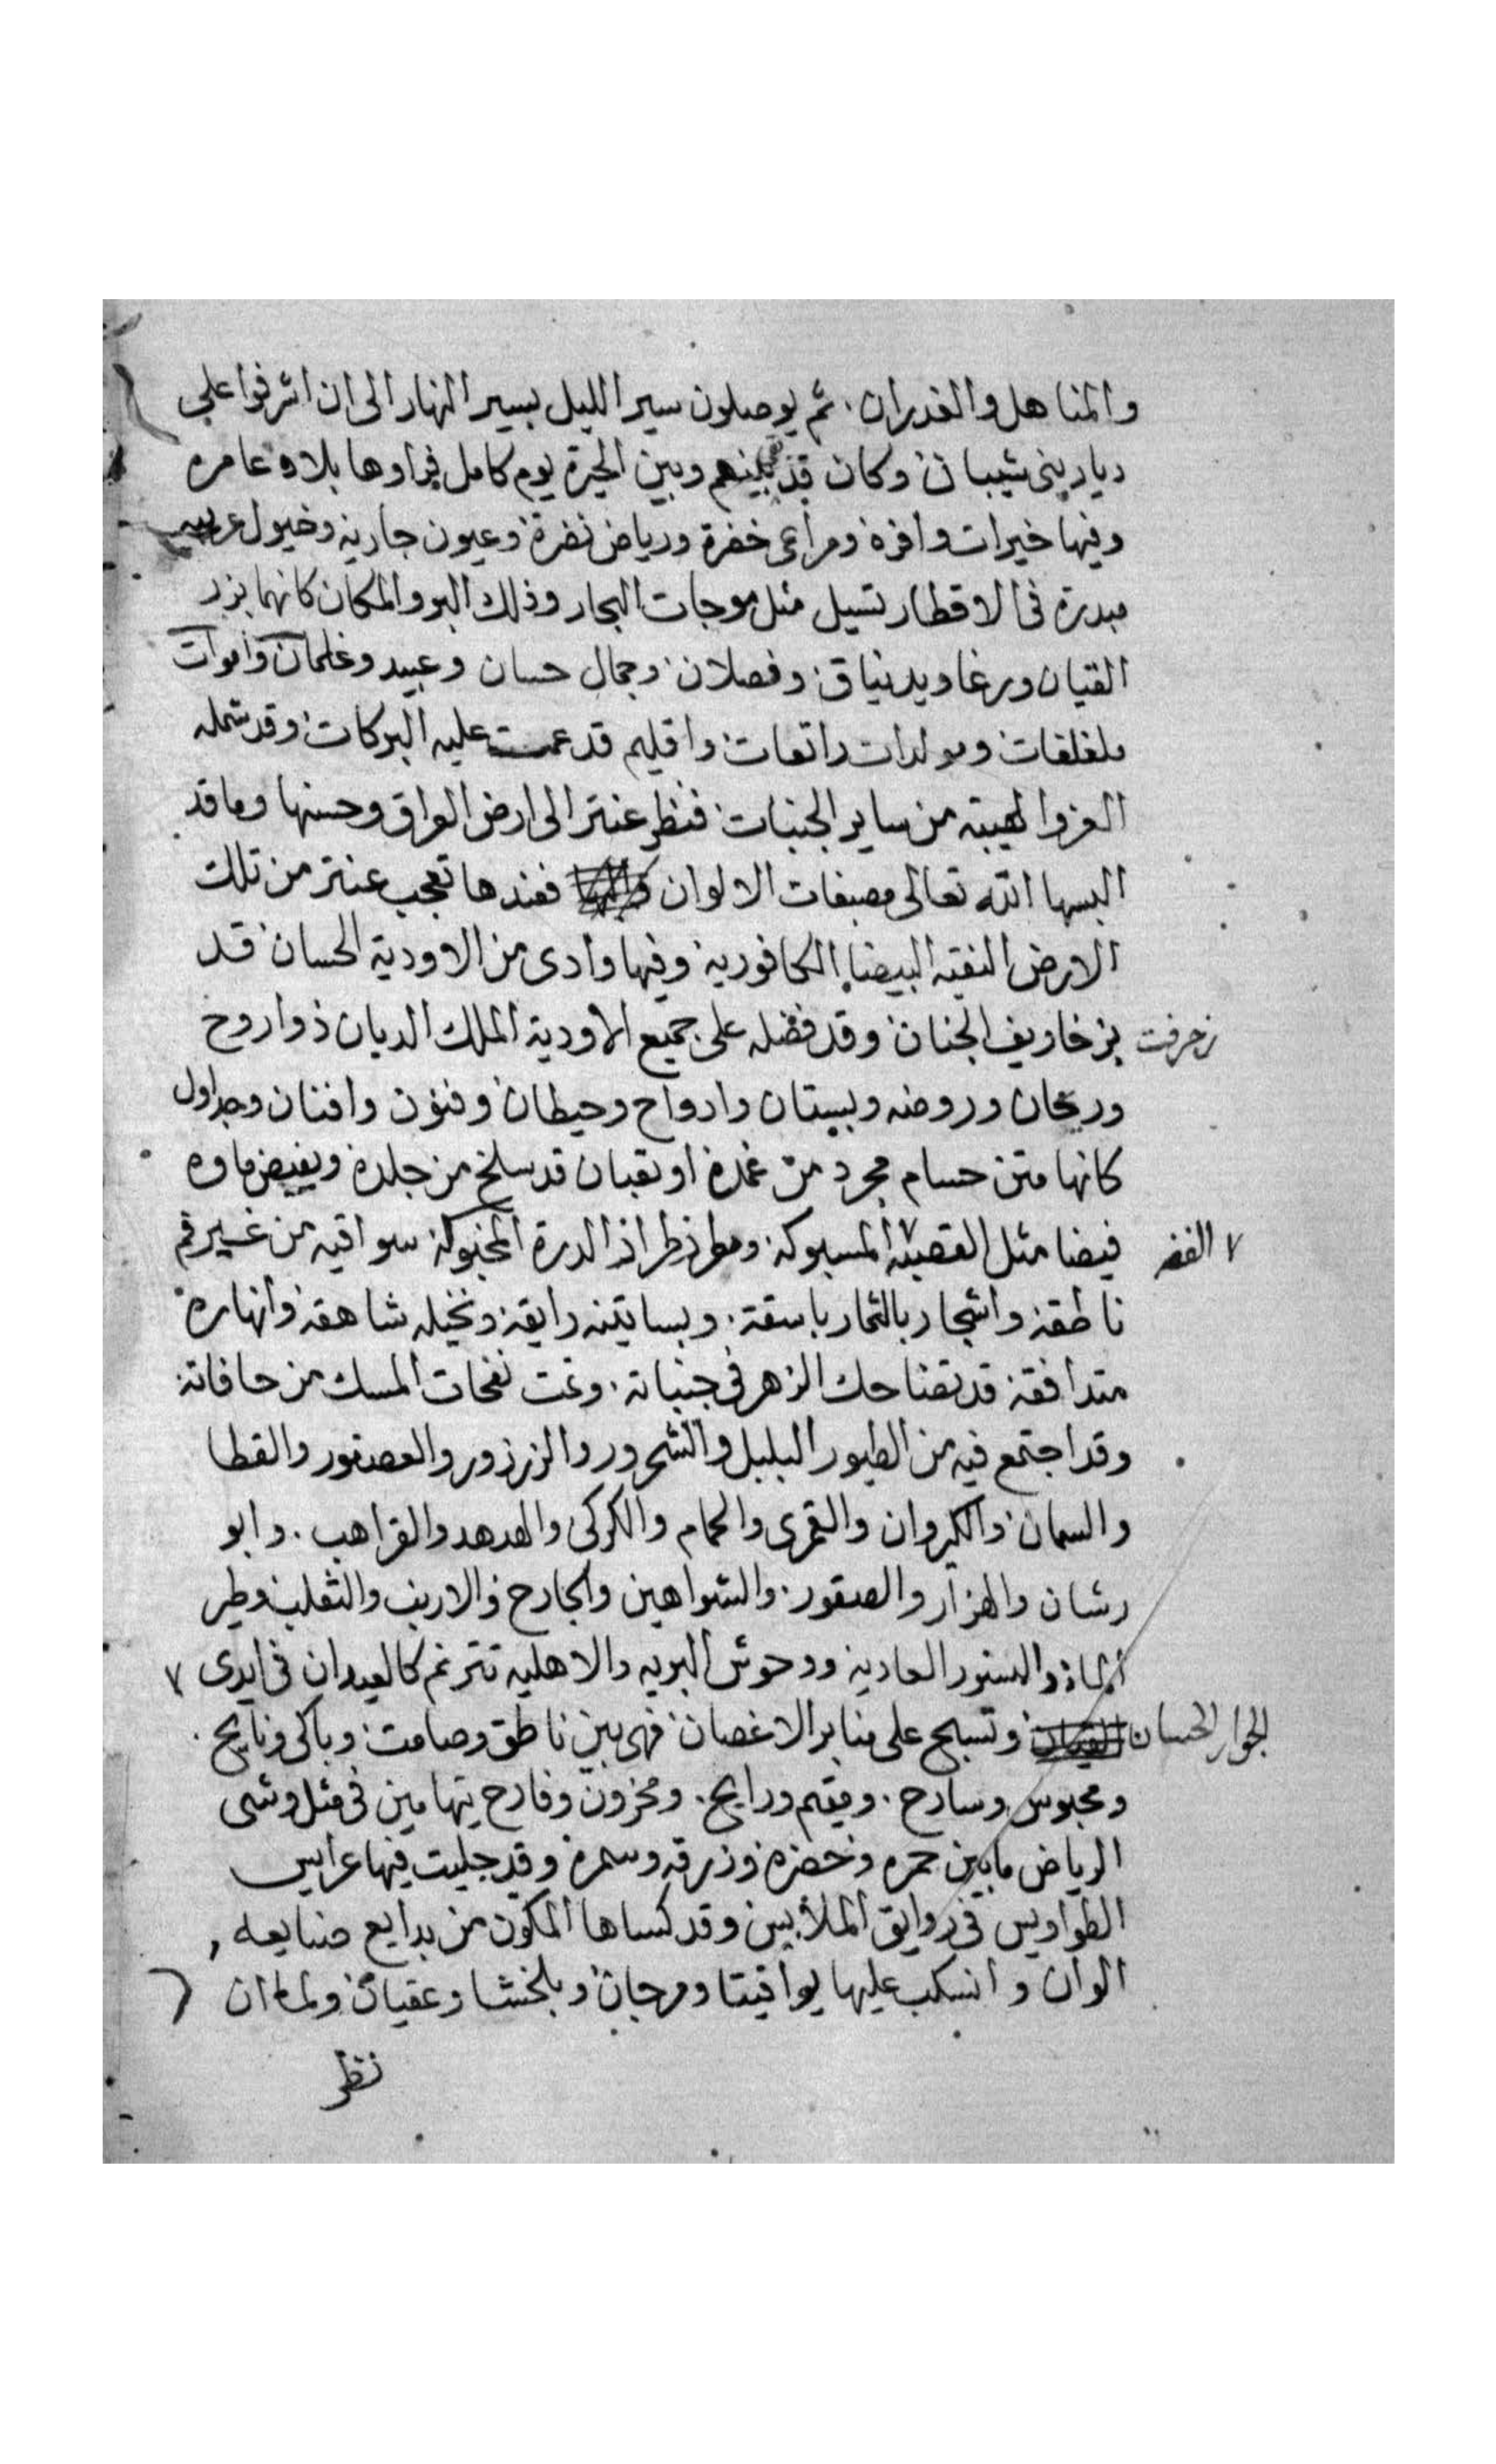 والمناهل والغدران. ثم يوصلون سير الليل بسير النهار الى ان اشرفوا على
ديار بنى شيبان وكان قد بقى بينهم وبين الحيرة يوم كامل فراوها بلاد عامره
وفيها خيرات وافره ومراعى خضرة ورياض نضرة وعيون جاريه وخيول عربيه
مبدرة فى الاقطار تسيل مثل موجات البحار وذلك البر والمكان كانهما بزر
القيان ورغا ويد نياق وفصلان وجمال حسان وعبيد وغلمان واموات
ملغلغات ومولدات راتعات واقليم قد عمت عليه البركات وقد شمله
العز والهيبته من ساير الجنبات فنظر عنتر الى ارض العراق وحسنها وما قد
البسها الله تعالى مصبغات الالوان فعندها تعجب عنتر من تلك
الارض النقيه البيضا الكافوريه وفيها وادى من الاودية الحسان قد
زخرفت بزخاريف الجنان وقد فضله على جميع الاودية الملك الديان ذوا روح
وريحان وروضه وبستان وادواح وحيطان وفنون وافنان وجداول
كانها متن حسام مجرد من غمدة او ثعبان قد سلخ من جلدة ويفيض ماوه
فيضا مثل الفضه المسبوكه ومطرز طراز الدرة المحبوكة سواقيه من غير فم
ناطقه واشجار بالثمار باسقة. وبساتينه رايقه ونخيله شاهقه وانهاره
متدافقه قد تضاحك الزهر فى جنباته. ونمت نفحات المسك من حافاته
وقد اجتمع فيه من الطيور البلبل والشحرور والزرزور والعصفور والقطا
والسمان والكروان والقمرى والحمام والكركى والهدهد والقراهب. وابو
رشان والهزار والصقور. والشواهين والجارح والارنب والثعلب وطير
الماء والنسور العاديه ووحوش البريه والاهليه تترنم كالعيدان فى ايدى
الجوار الحسان وتسبح على منابر الاغصان فهى بين ناطق وصامت وباكى ونايح.
ومحبوس وسارح. ومقيم ورايح. ومحزون وفارح يتهامين فى مثل وشى
الرياض ما بين حمره وخضره وزرقه وسمره وقد جليت فيها عرايس
الطواويس فى روايق الملابس وقد كساها المكون من بدايع صنايعه
الوان وانسكب عليها يواقيتا ومرجان وبلخشا وعقيان ولما ان
نظر